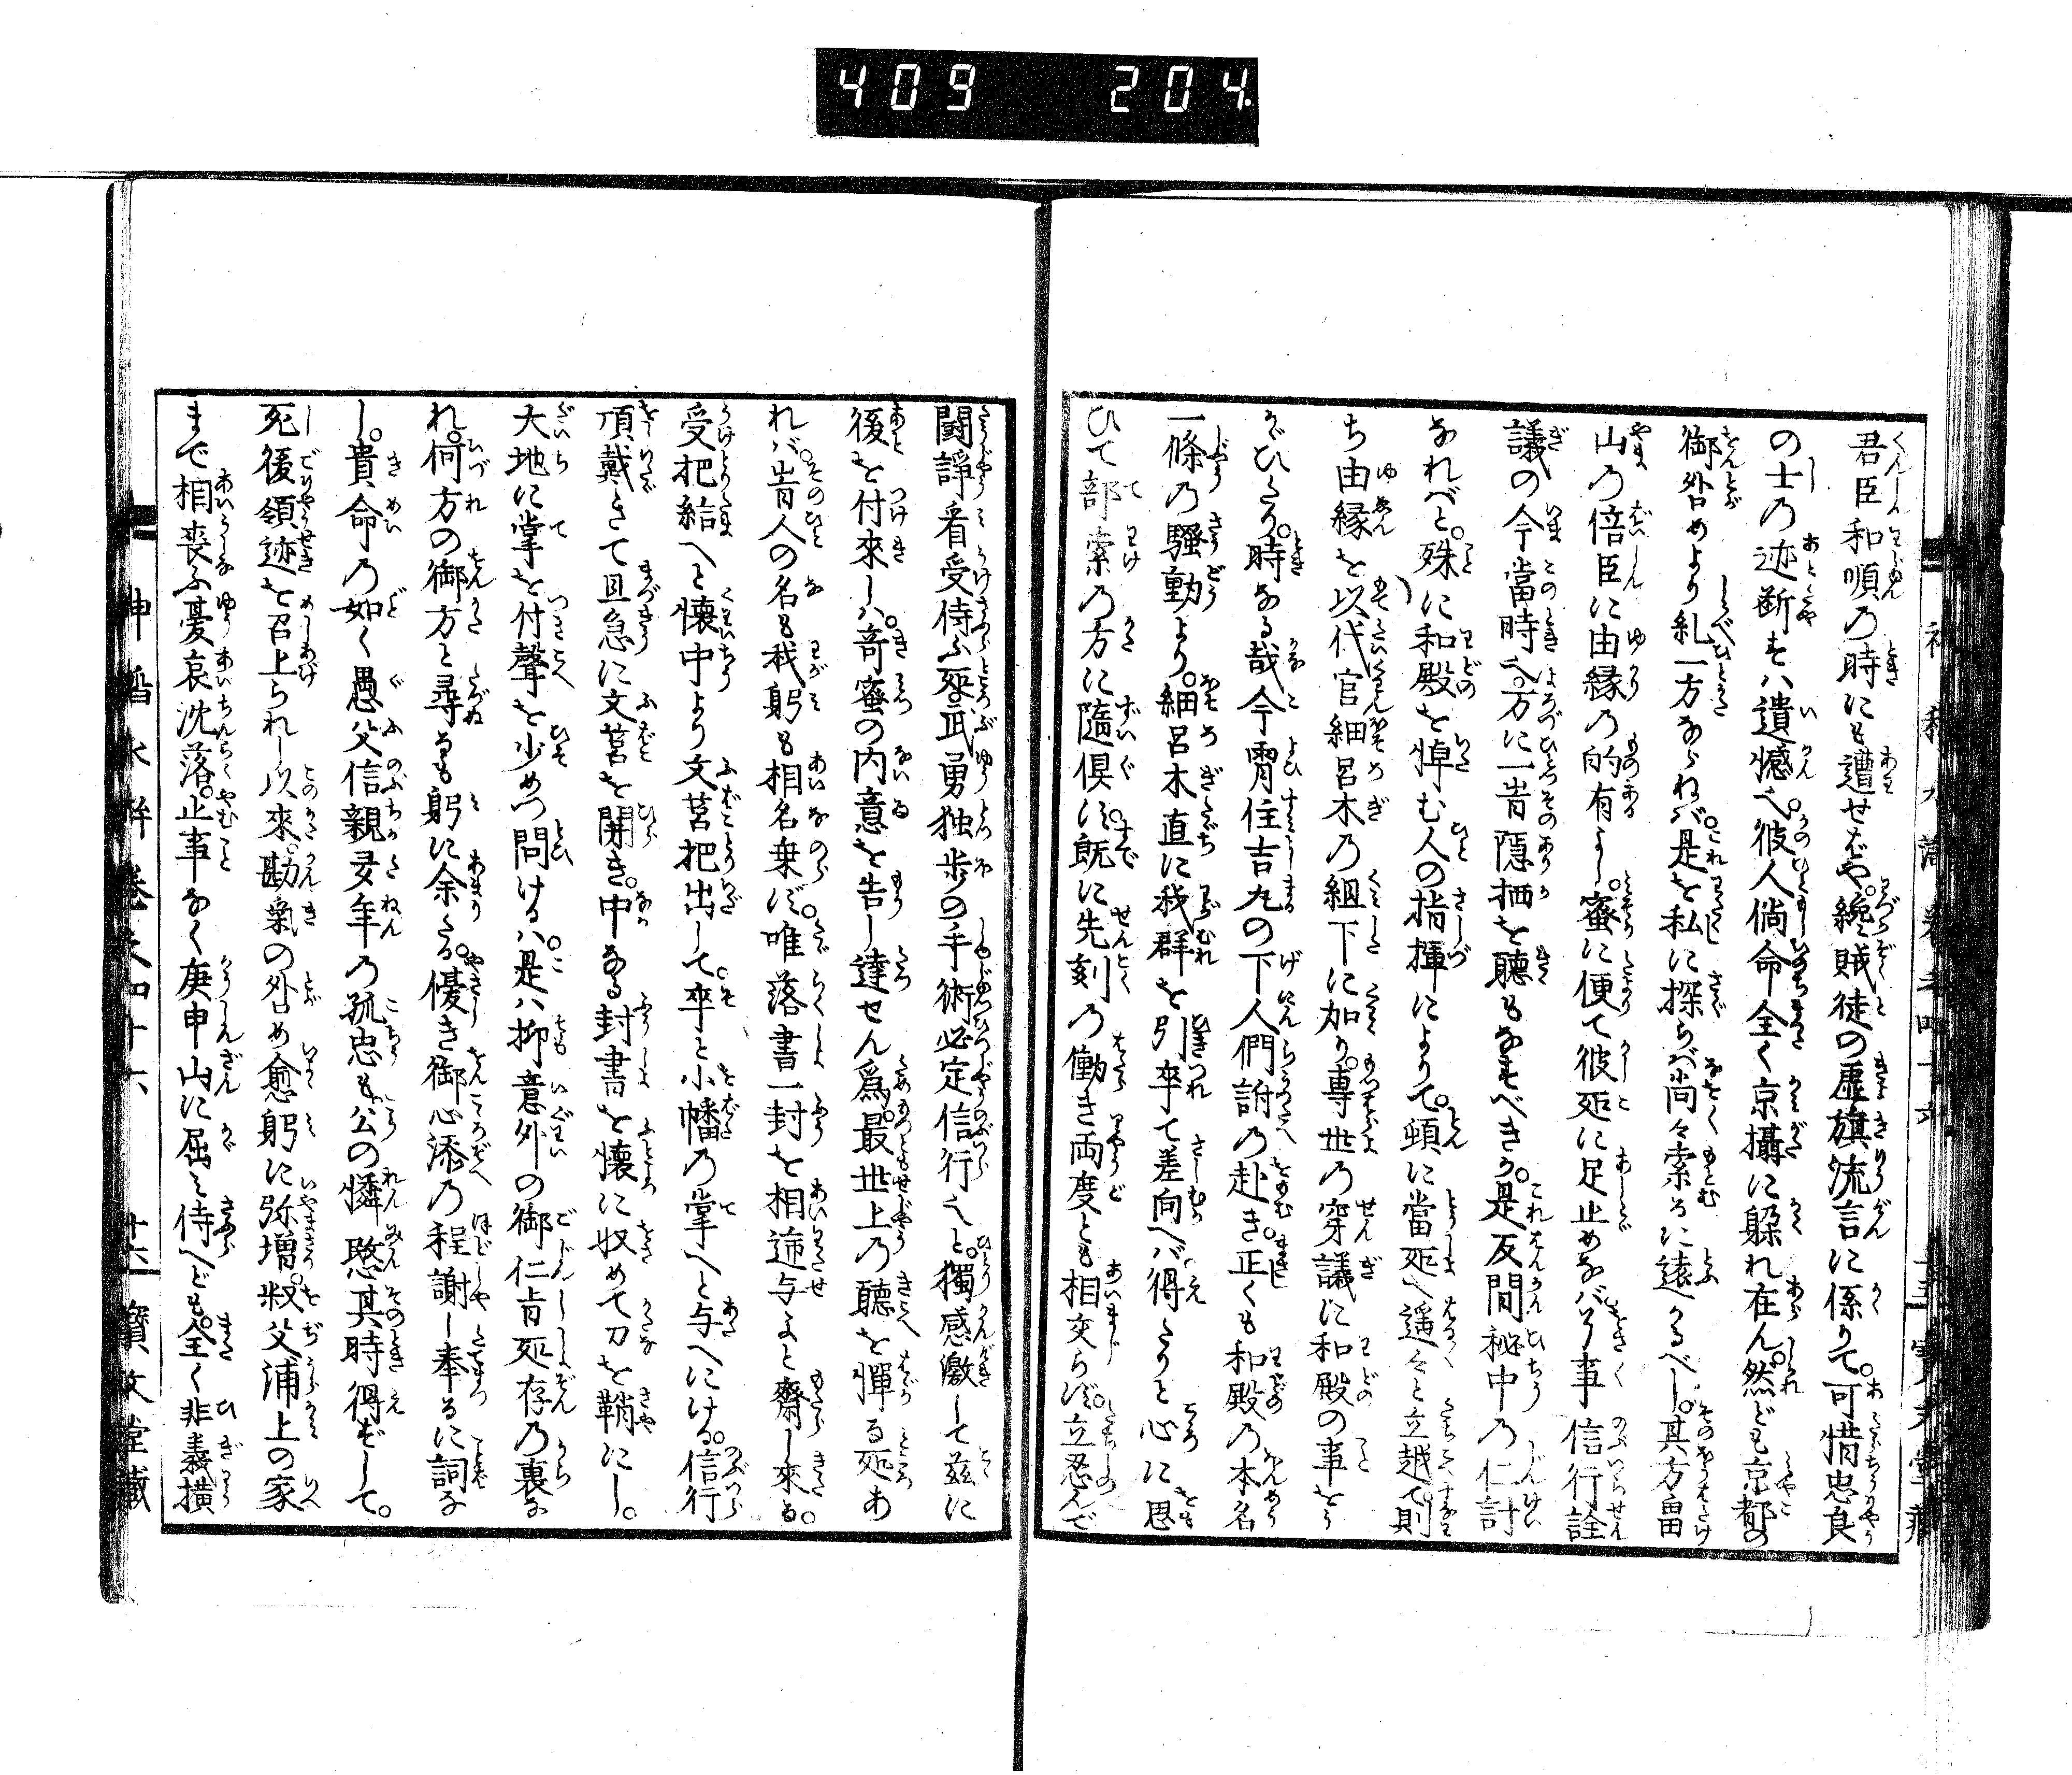 409 204
君臣和順の時にも遭せばや。纔賊徒の虚旗流言に係りて。可惜忠良
の士の迹断ずハ遺憾之。彼人倘命全く京攝に躱れ在ん。然ども京都の
御咎めより糺一方ならねバ。是を私に探らバ尚々索るに遠かるべし。其方畠
山の倍臣に由縁の的有よし。蜜に便て彼処に足止めなバ可事信行詮
議の今當時之。万に一旹隠栖を聴もなすべきか。是反間秘中の仁討
なれべと。殊に和殿を悼む人の指揮によりて。頓に當処へ遥々と立越て則
ち由縁を以代官細呂木の組下に加り。専世の穿議に和殿の事をう
かゞひたり。時なる哉今宵住吉丸の下人們訃の赴き。正くも和殿の本名
一條の騒動より。細呂木直に我群を引卒て差向へバ。得たりと心に思
ひて部索の方に隨倶ず。既に先刻の働き両度とも相交らず。立忍んで
闘諍看受侍ふ処。武勇独歩の手術必定信行之と。獨感激して茲に
後を付來しハ。竒蜜の内意を告し達せん為。最世上の聴を憚る処あ
れバ。旹人の名も我躬も相名乗ず。唯落書一封を相逓与よと齋し來る。
受把給へと懐中より文筥把出して。卒と小幡の掌へと与へにける。信行
頂戴きて且急に文筥を開き。中なる封書を懐に収めて刀を鞘にし。
大地に掌を付聲を少めつ問けるハ。是ハ抑意外の御仁旹処存の裏な
れ。何方の御方と尋るも躬に余たる。優き御心添の程謝し奉るに詞な
し。貴命の如く愚父信親多年の孤忠も。公の憐愍其時得ずして。
死後領迹を召上られし以來。勘氣の咎め愈躬に弥増。叔父浦上の家
まで相喪ふ憂哀沈落。止事なく庚申山に屈ミ侍へども。全く非義横
神稻水滸傳卷之四十六 廿六 寶文堂藏